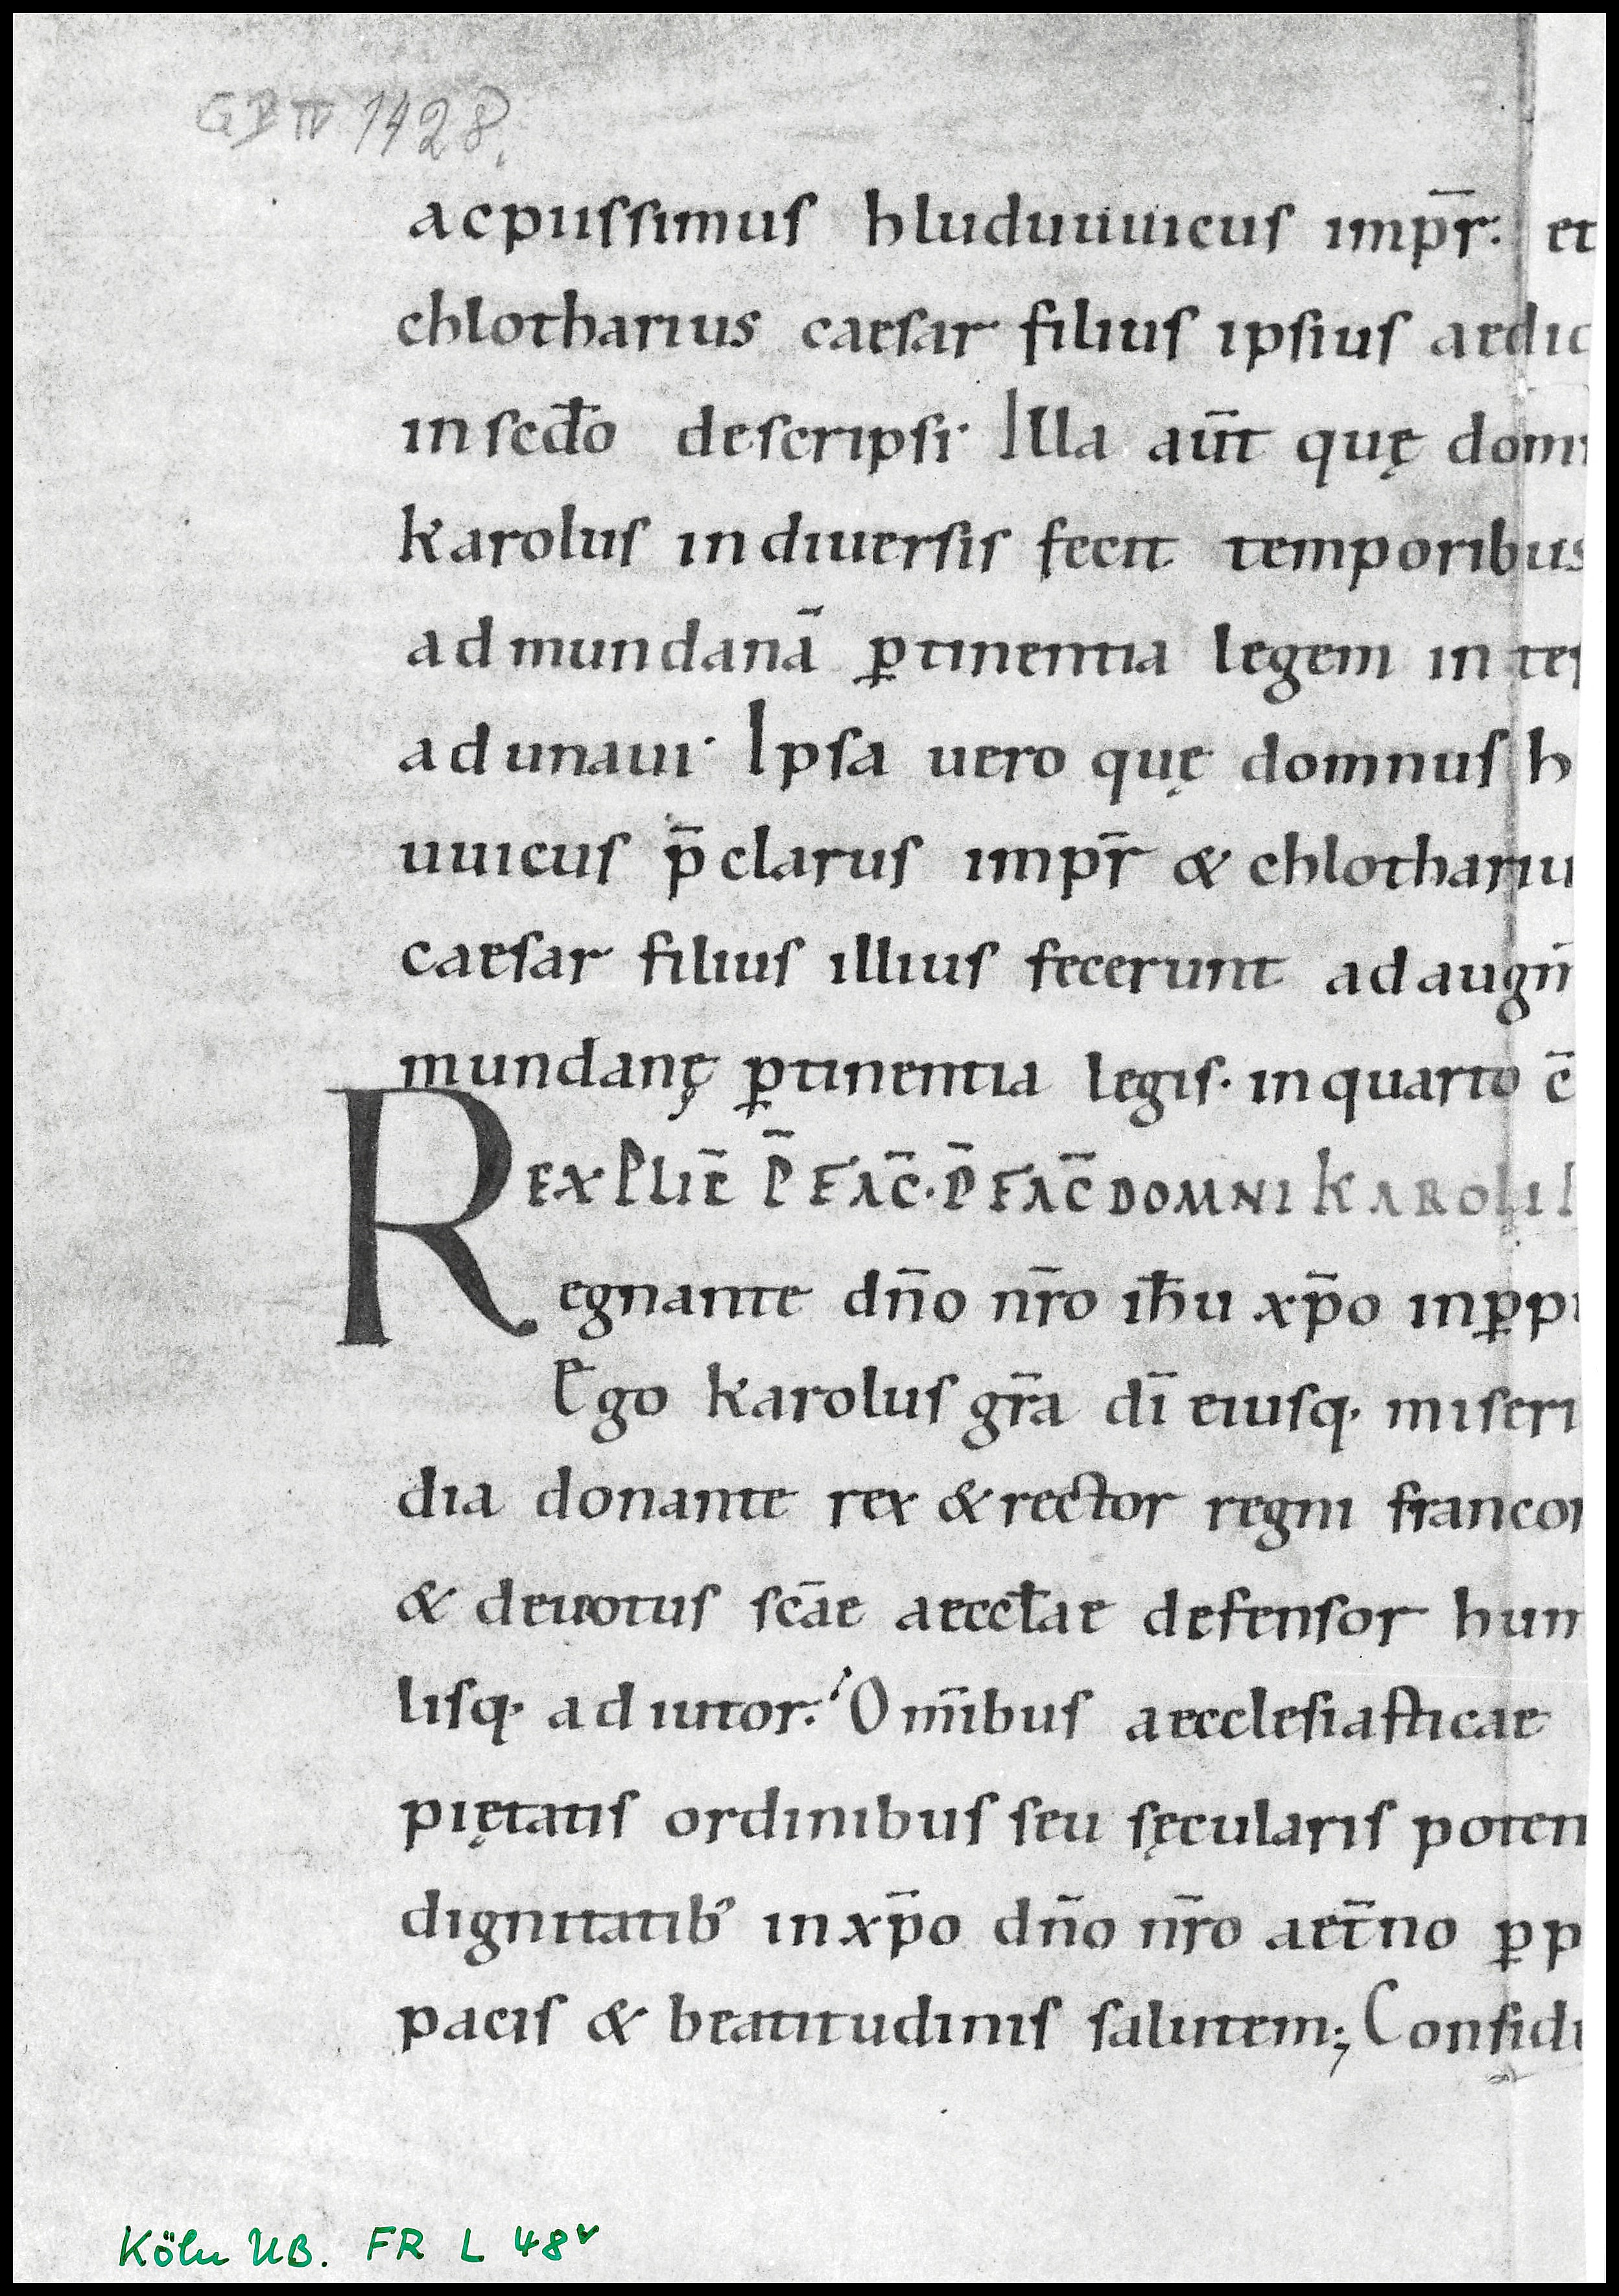 GB IV 1428.
ac piissimus hluduuuicus imp̄r. et
chlotharius caesar filius ipsius aedic
in scd̄o descripsi. Illa aūt quę domn
karolus in diuersis fecit temporibus
ad mundanā ꝑtinentia legem in ter
adunaui. Ipsa uero quę domnus h
uuicus p̄clarus imp̄r & chlothariu
caesar filius illius fecerunt ad augm̄
mundanę ꝑtinentia legis. in quarto c̄
EXPLIC̄ P̄FAC̄. P̄FAC̄ DOMNI KAROLI
Regnante dn̄o nr̄o ih̄u xp̄o in ꝑp
Ego karolus gr̄a dī eiusq. miseri
dia donante rex & rector regni francor
& deuotus sc̄ae aeccl̄ae defensor hum
lisq. adiutor. Om̄ibus aecclesiasticae
piętatis ordinibus seu sęcularis poten
dignitatib' in xp̄o dn̄o nr̄o aet̄no ꝑp
pacis & beatitudinis salutem; Consid
Köln UB. FR L 48v